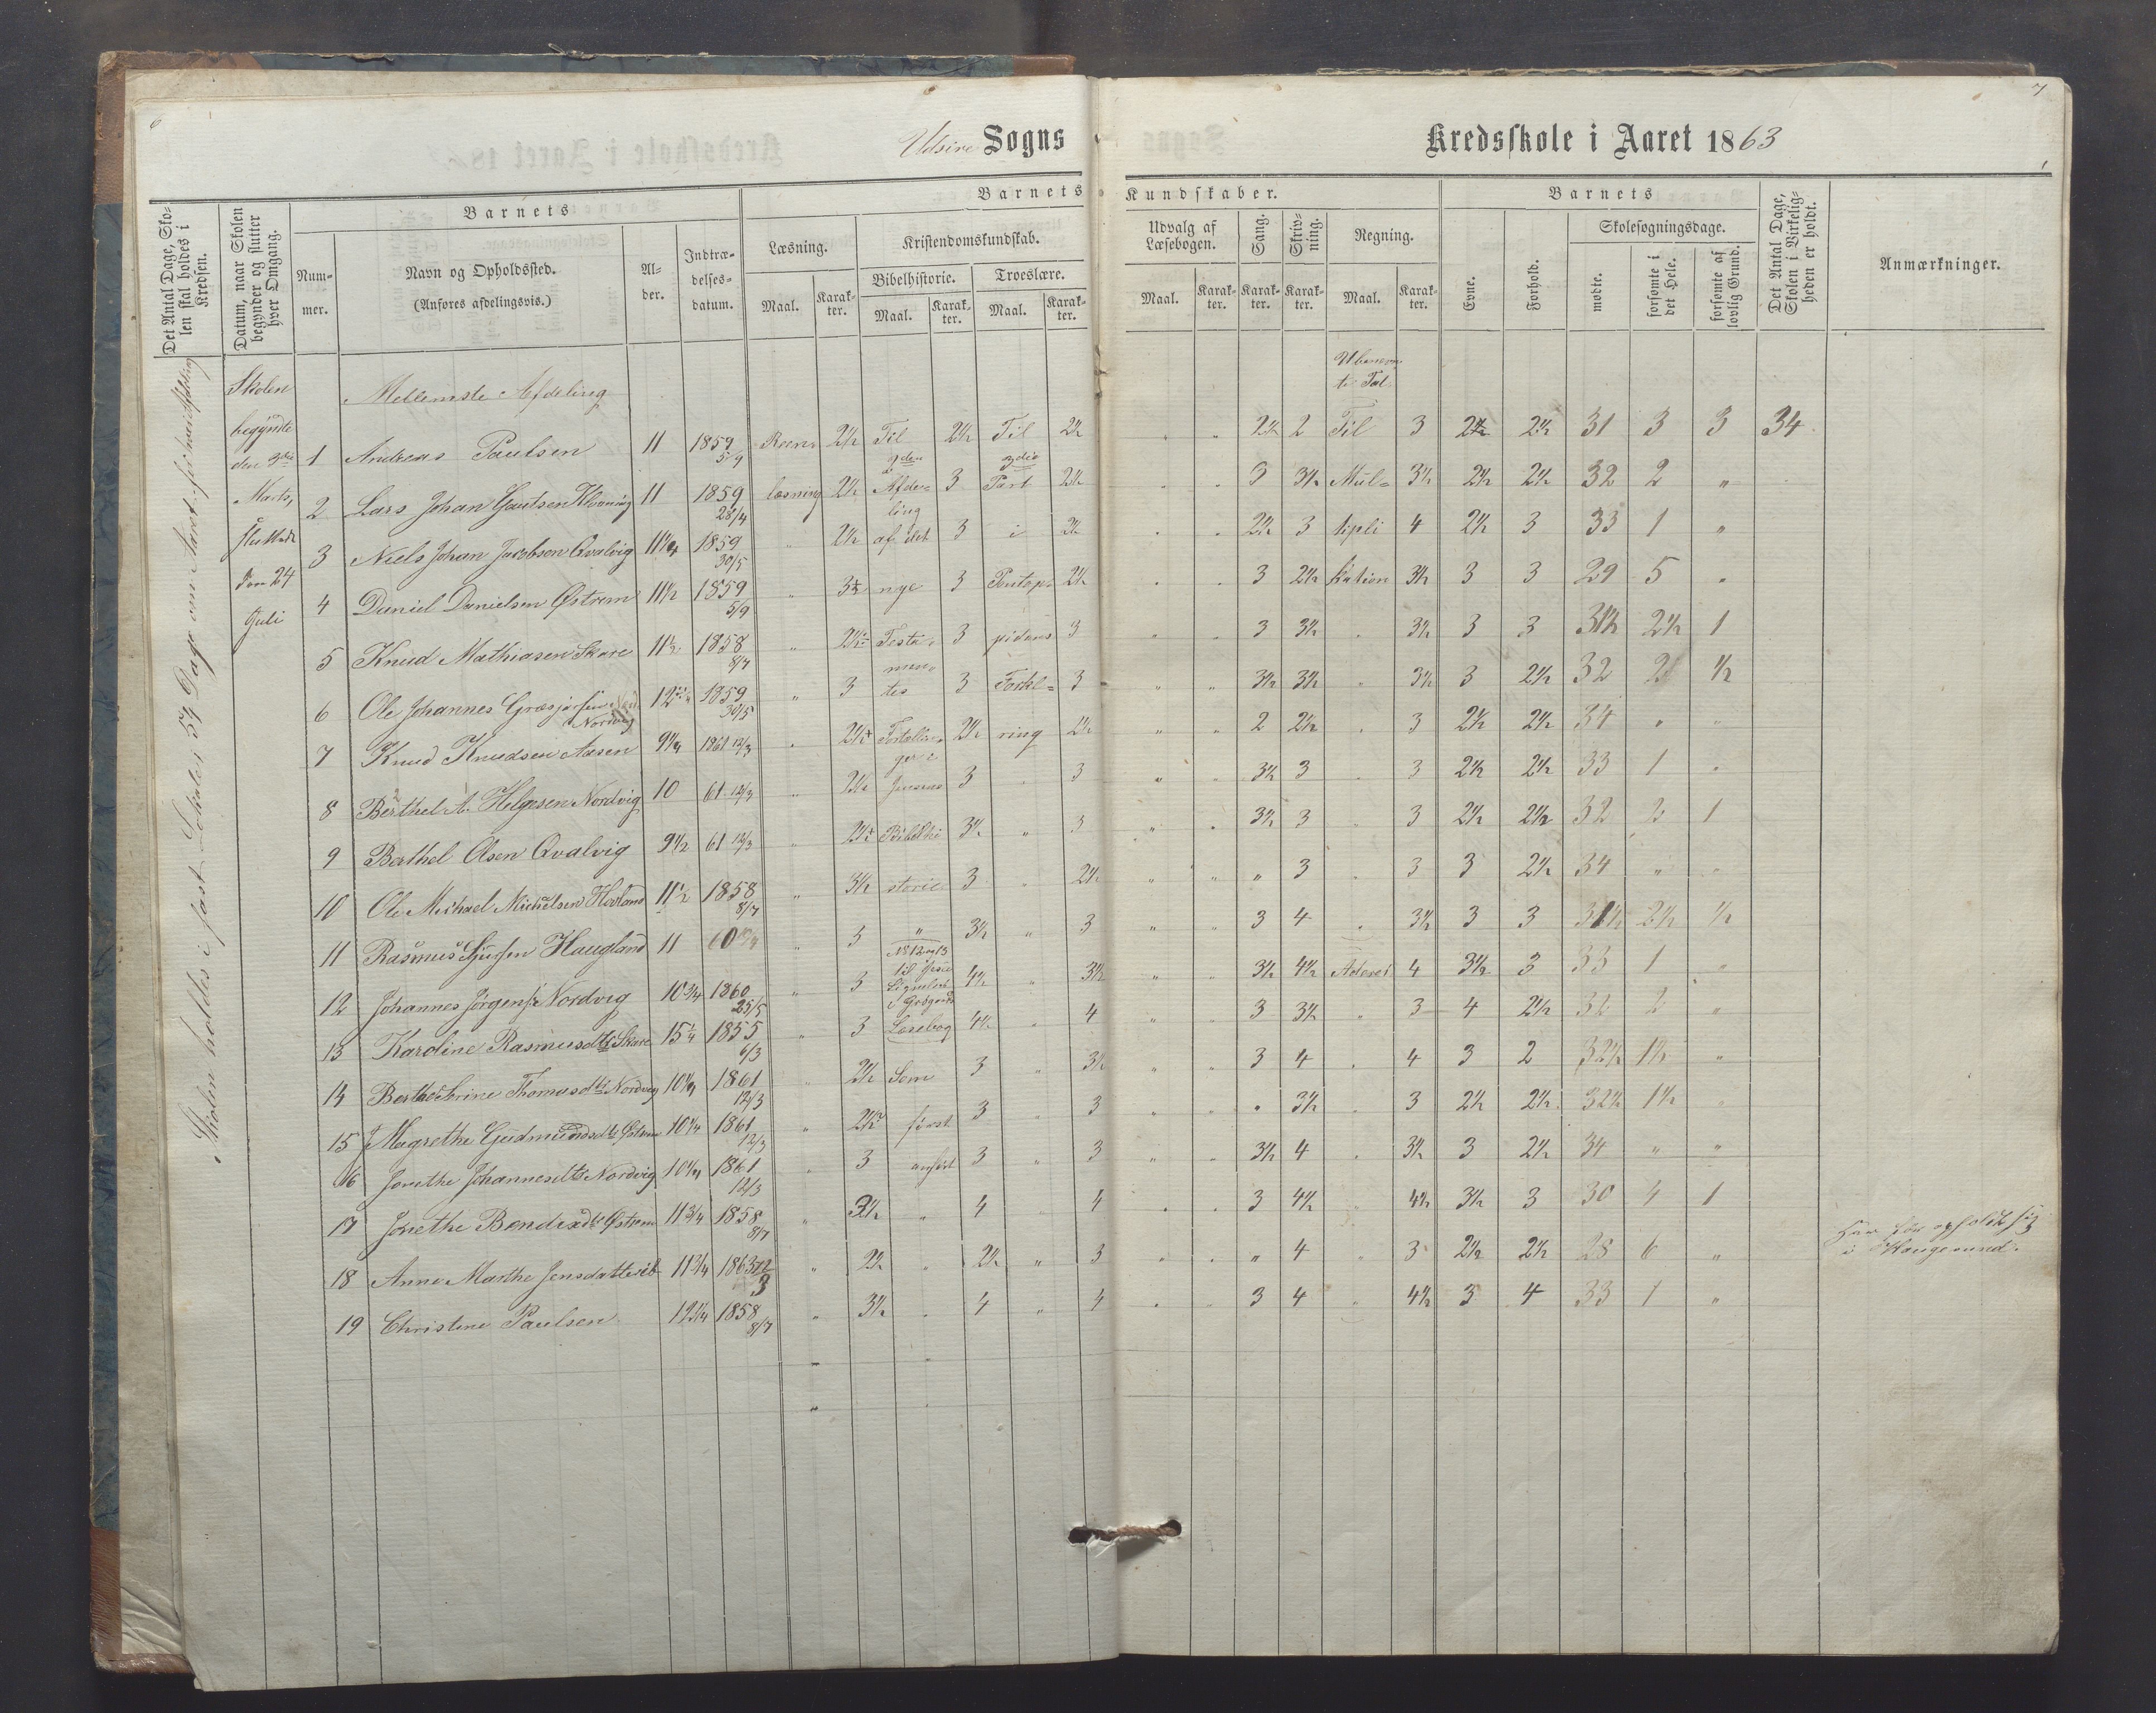 6
Udsire Sogns
Kredsskole i Aaret 1863
7
Det Antal Dage, Skolen skal holdes i Kredsen.
Datum, naar Skolen begynder og slutter hver Omgang.
Barnets
Barnets Kundskaber.
Barnets
Det Antal Dage, Skolen i Virkeligheden er holdt.
Anmærkninger.
Nummer.
Navn og Opholdssted.
(Anføres afdelingsvis.)
Alder.
Indtrædelsesdatum.
Læsning.
Kristendomskundskab.
Bibelhistorie.
Troeslære.
Udvalg af Læsebogen.
Sang.
Skrivning.
Regning.
Evne.
Forhold.
Skolesøgningsdage.
Maal. Karakter. Maal. Karakter. Maal. Karakter.
Maal. Karakter. Karakter. Karakter. Maal. Karakter.
mødte.
forsømte i det Hele.
forsømte af lovlig Grund.
Skolen holdes i fast Lokale i 54 Dage om Aaret for hver Afdeling
Skolen
begyndte
den 9de
Marts,
sluttede
den 24
Juli
Mellemste Afdeling
te Tal
1 Andreas Paulsen 11 1859 5/9 Reen= 2½ Til 2½ Til 2½ " " 2½ 2 Til 3 2½ 2½ 31 3 3 34
2 Lars Johan Gautsen Klovning 11 1859 28/4 læsning 2½ Afde= 3 Part 2½ " " 3 3½ Mul= 3½ 2½ 2½ 32 2 "
ling
3 Niels Johan Jacobsen Qvalvig 11¼ 1859 30/5 " 2½ af det 3 i 2½ " " 2½ 3 tipli 4 2½ 3 33 1 "
4 Daniel Danielsen Østrem 11½ 1859 5/9 " 3½ nye 3 Pontop= 2½ " " 3 2½ kation 3½ 3 3 29 5 "
5 Knud Mathiasen Skare 11½ 1858 8/7 " 2½ Testa= 3 pidans 3 " " 3 3½ " 3½ 3 3 31½ 2½ 1
men=
6 Ole Johannes Nordvig 12 1859 30/5 " 3 tes 3 Forkl= 3 " " 3½ 3½ " 3½ 3 2½ 32 2 ½
7 Knud Knudsen Aasen 9¼ 1861 12/3 " 2½ Fortællin= 2½ ring 2½ " " 2 2½ " 3 2½ 2½ 34 " "
ger i
8 Berthel A. Helgesen Nordvig 10 61 12/3 " 2½ Jensens 3 " 3 " " 3½ 3 " 3 2½ 2½ 33 1 "
9 Berthel Olsen Qvalvig 9½ 61 12/3 " 2½ Bibelhi 3½ " 3 " " 3½ 3 " 3 2½ 2½ 32 2 1
10 Ole Michael Michelsen Hovland 11½ 1858 8/7 " 3½ storie 3 " 2½ " " " 3 " 3 3 2½ 34 " "
11 Rasmus Sjursen Haugland 11 60 " 3 " 3½ " 3 " " 3 4 " 3½ 3 3 31½ 2½ ½
12 Johannes Jørgens. Nordvig 10¾ 1860 25/5 " 3 4½ " 3½ " " 3½ 4½ 4 3½ 3 33 1 "
13 Karoline Rasmusdtr Skare 15¼ 1855 6/3 " 3 Læsebog 4½ " 4 " " 3 3½ " 3 4 2½ 32 2 "
14 Berthe Serine Thomasdtr Nordvig 10¼ 1861 12/3 " 2½ Som 3 " 3½ " " 3 4 " 4 3 2 32½ 1½ "
15 Magrethe Gudmundsdtr Østrem 10¼ 1861 12/3 " 2½ først 3 " 3 " " " 3½ " 3 2½ 2½ 32½ 1½ "
16 Jorethe Johannesdtr Nordvig 10¼ 1861 12/3 " 3 anført 3 " 3 " " 3½ 4 " 3½ 3 2½ 34 " "
17 Jorethe Bendixdtr Østrem 11¾ 1858 8/7 " 3½ " 4 " 4 " " 3 4½ " 4½ 3½ 3 30 4 1
18 Anne Marthe Jensdatter 11¾ 1863 12/3 " 2½ " 2½ " 3 " " " 4 " 3 2½ 2½ 28 6 " Har før opholdt sig i Haugesund.
19 Christine Paulsen 12¼ 1858 8/7 " 3½ " 4 " 4 " " 3 4 " 4½ 3 4 33 1 "